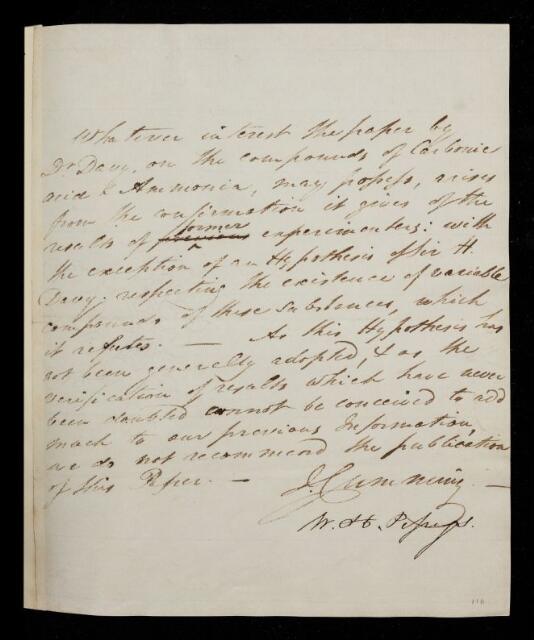 Whatever interest the paper by
Dr Davy, on the compounds of Carbonic
acid & Ammonia, may possess, arises
from the confirmation it gives of the
former
results of previous experimenters: with
the exception of an Hypothesis of Sir H.
Davy; respecting the existence of variable
compounds of these substances, which
it refutes. — As this Hypothesis has
not been generally adopted, & as the
verification of results which have never
been doubted cannot be conceived to add
much to our previous Information,
we do not recommend the publication
of this Paper. —
J. Cumming. —
W. H. Pepys.